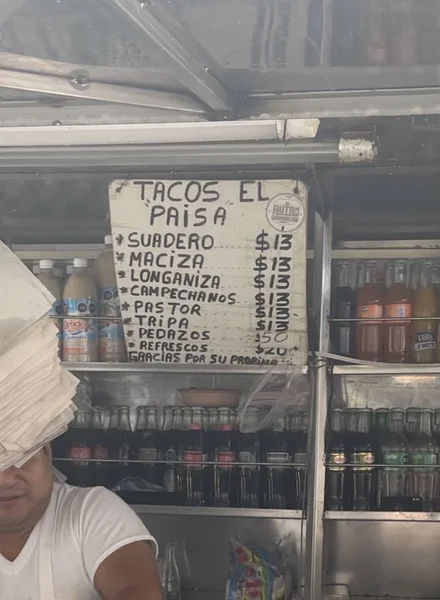 TACOS EL
"PAISA"
* SUADERO $13
* MACIZA $13
* LONGANIZA $13
* CAMPECHANOS $13
* PASTOR $13
* TRIPA $13
* PEDAZOS 150
* REFRESCOS $20
GRACIAS POR SU PROPINA